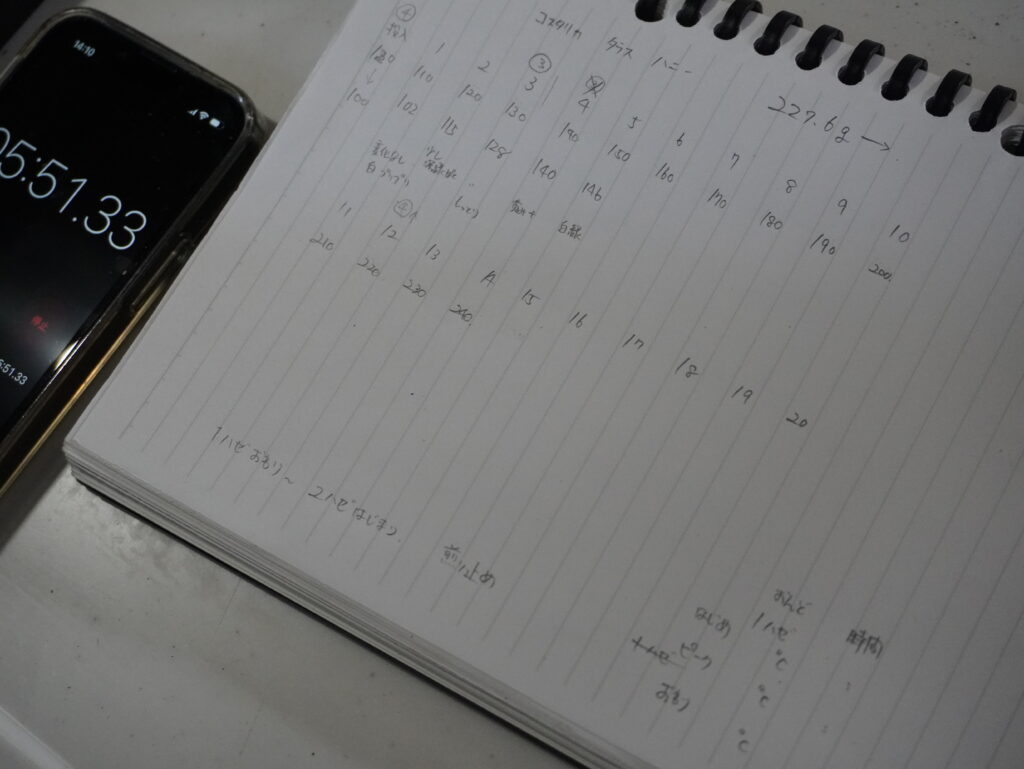 14:10
05:51.33
停止
5:51.33
コスタリカ ダラス ハニー
227.6g →
投入 1 2 3 4 5 6 7 8 9 10
110 120 130 140 150 160 170 180 190 200
↓
100 102 113 128 140 146
変化なし 少し
白 しっとり
11 12 13 14 15 16 17 18 19 20
210 220 230 240
1ハゼおわり〜 2ハゼはじまり
煎り止め
おんど 時間
はじめ 1ハゼ ℃ :
ピーク ℃ :
おわり ℃